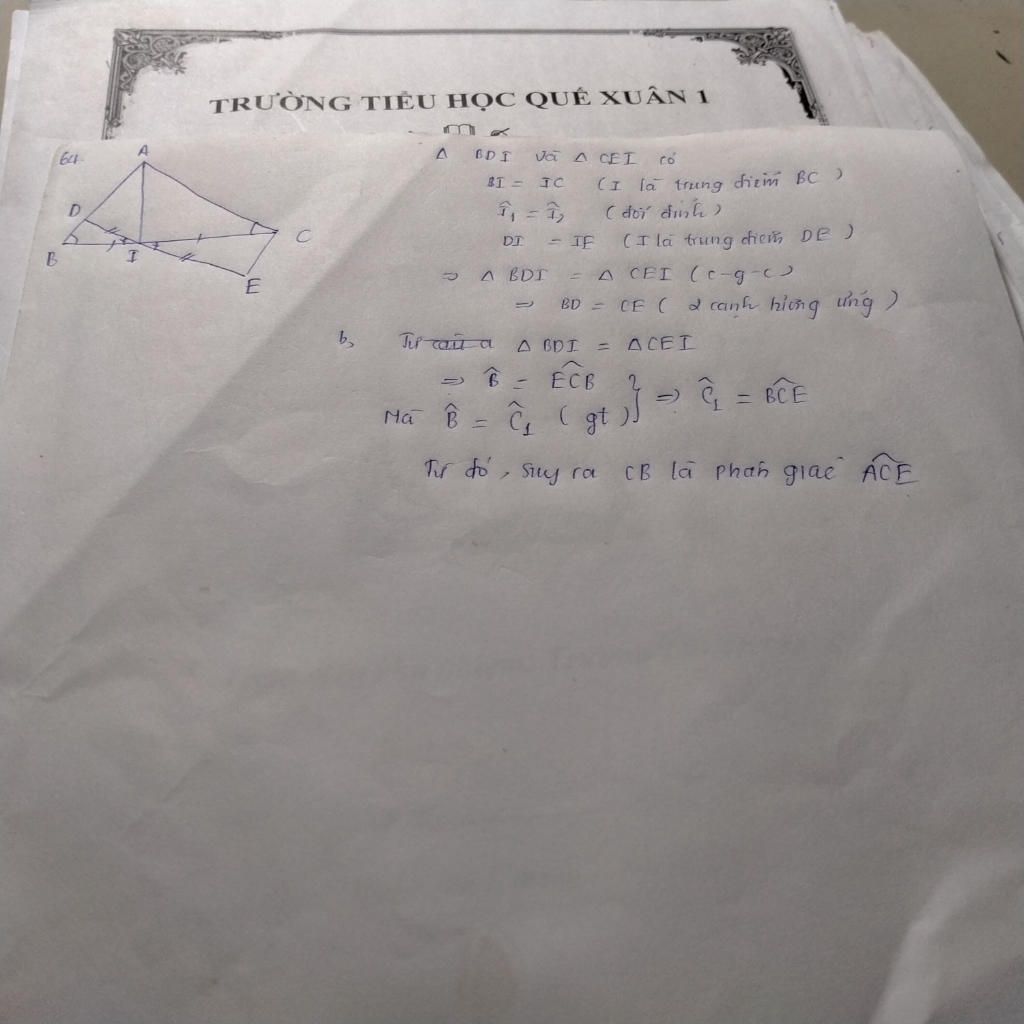 TRƯỜNG TIỂU HỌC QUẾ XUÂN 1
64.
A
D
B
I
C
E
Δ BDI và Δ CEI có
BI = IC (I là trung điểm BC)
Î₁ = Î₂ (đối đỉnh)
DI = IE (I là trung điểm DE)
=> Δ BDI = Δ CEI (c-g-c)
=> BD = CE (2 cạnh tương ứng)
b, Từ câu a Δ BDI = Δ CEI
=> B̂ = ECB̂ } => Ĉ₁ = BCÊ
Mà B̂ = Ĉ₁ (gt)
Từ đó, suy ra CB là phân giác ACÊ